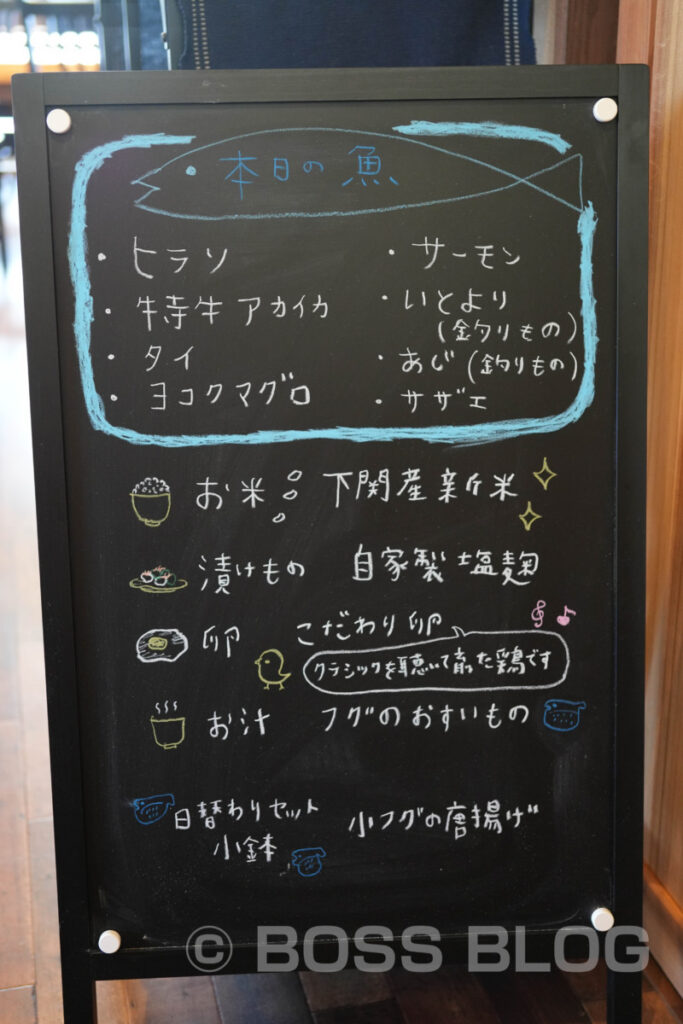 本日の魚
・ヒラソ
・特牛 アカイカ
・タイ
・ヨコクマグロ
・サーモン
・いとより
(釣りもの)
・あじ (釣りもの)
・サザエ
お米 下関産新米
漬けもの 自家製塩麹
卵 こだわり卵
クラシックを聴いて育った鶏です
お汁 フグのおすいもの
日替わりセット
小鉢
小フグの唐揚げ
© BOSS BLOG